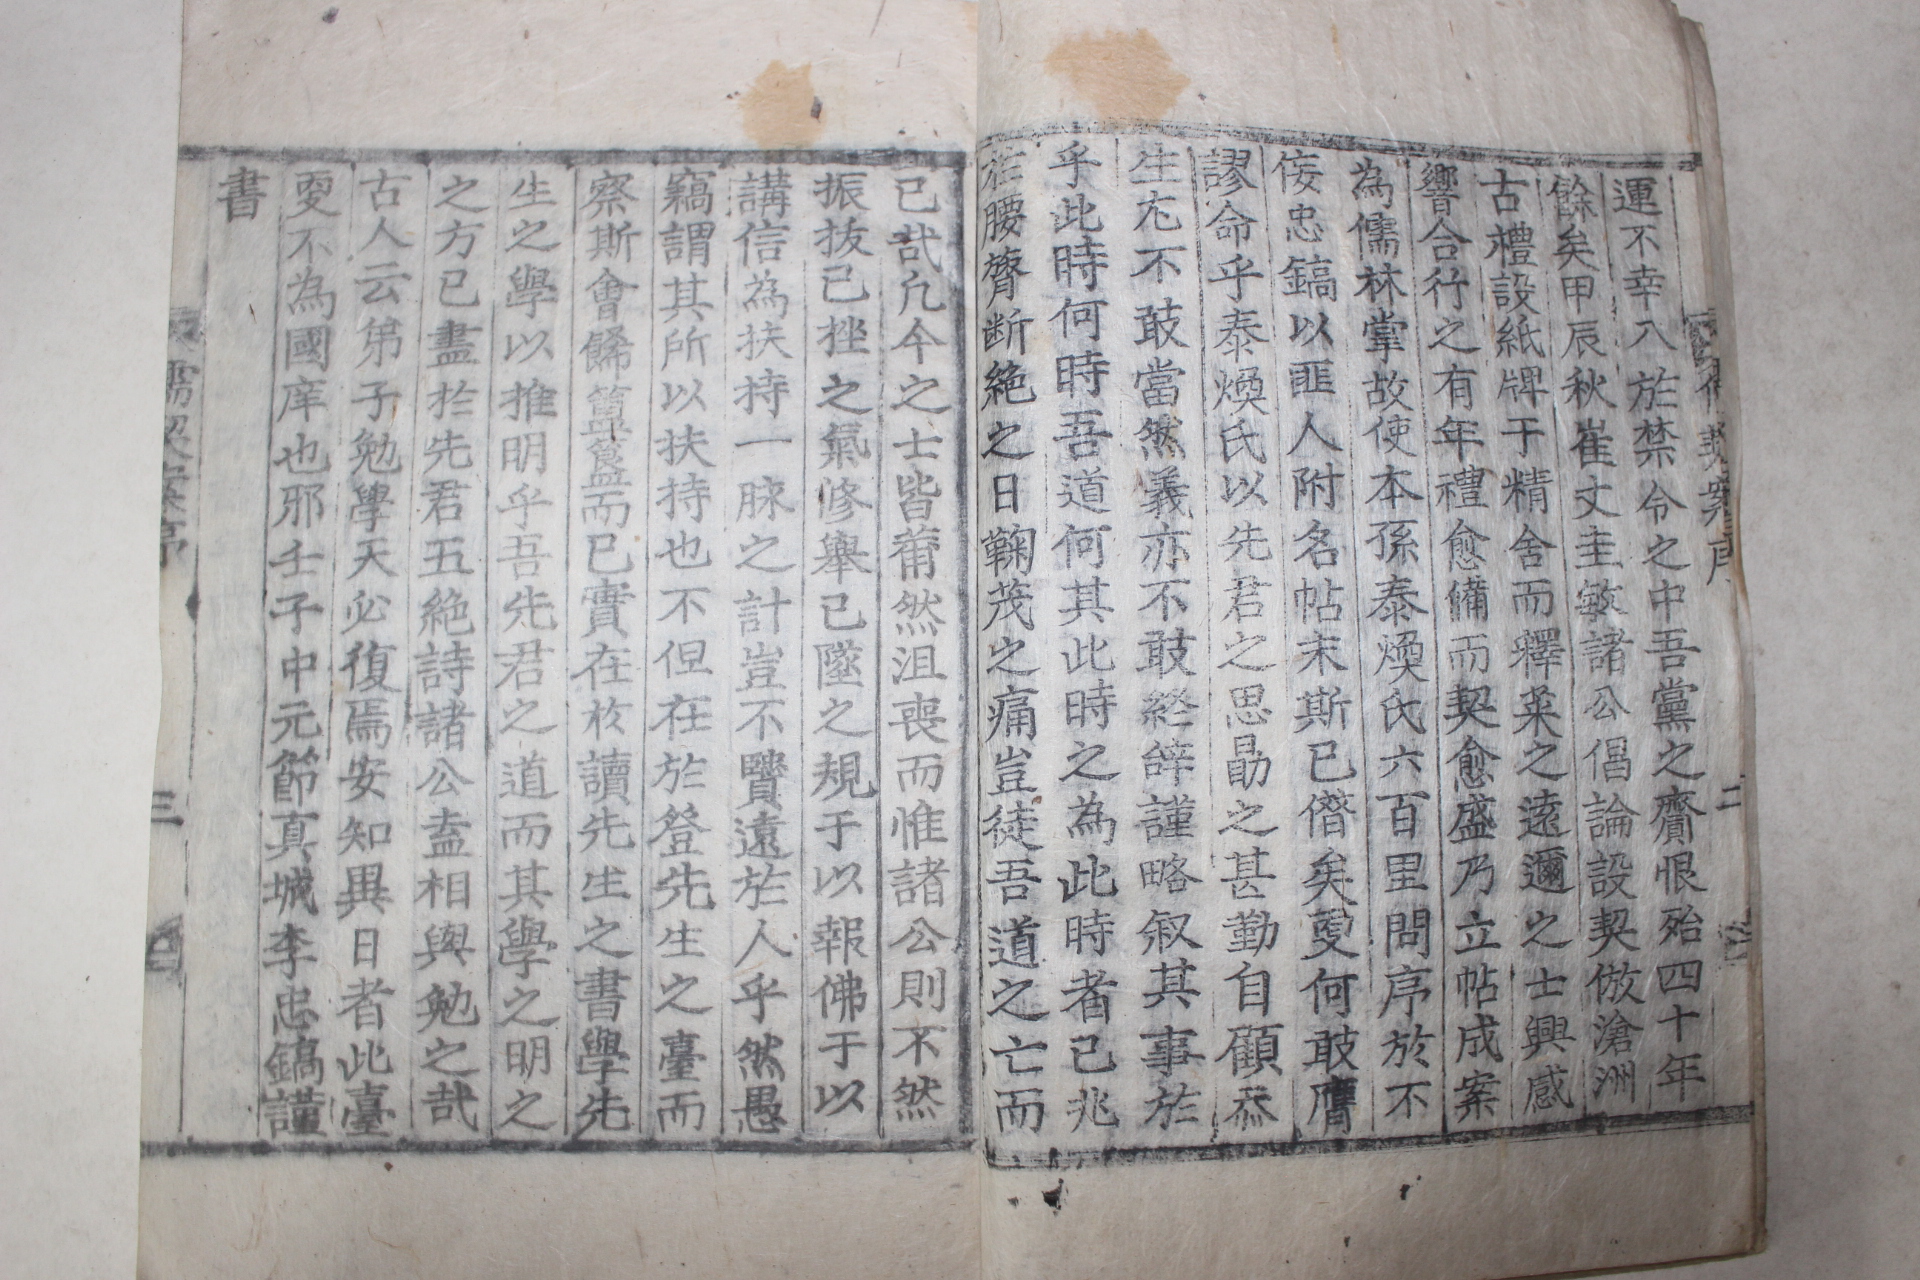 運不幸入於禁令之中吾黨之齎恨殆四十年
餘矣甲辰秋崔丈圭敏諸公倡論設契倣滄洲
古禮設紙牌于精舍而釋菜之遠邇之士興感
響合行之有年禮愈備而契愈盛乃立帖成案
為儒林掌故使本孫泰煥氏六百里問序於不
侫忠鎬以匪人附名帖末斯已僭矣更何敢膺
謬命乎泰煥氏以先君之思勗之甚勤自顧忝
生尢不敢當然義亦不敢終辭謹略叙其事於
乎此時何時吾道何其此時之為此時者已兆
於腰膂断絶之日鞠茂之痛豈徒吾道之亡而
已哉凡今之士皆薾然沮喪而惟諸公則不然
振拔已挫之氣修舉已墜之規于以報佛于以
講信為扶持一脉之計豈不賢遠於人乎然愚
竊謂其所以扶持也不但在於登先生之臺而
察斯會餙簠簋而已實在於讀先生之書學先
生之學以推明乎吾先君之道而其學之明之
之方已盡於先君五絶詩諸公盍相與勉之哉
古人云弟子勉學天必復焉安知異日者此臺
更不為國庠也邪壬子中元節真城李忠鎬謹
書
儒契案序
三
契案序
二